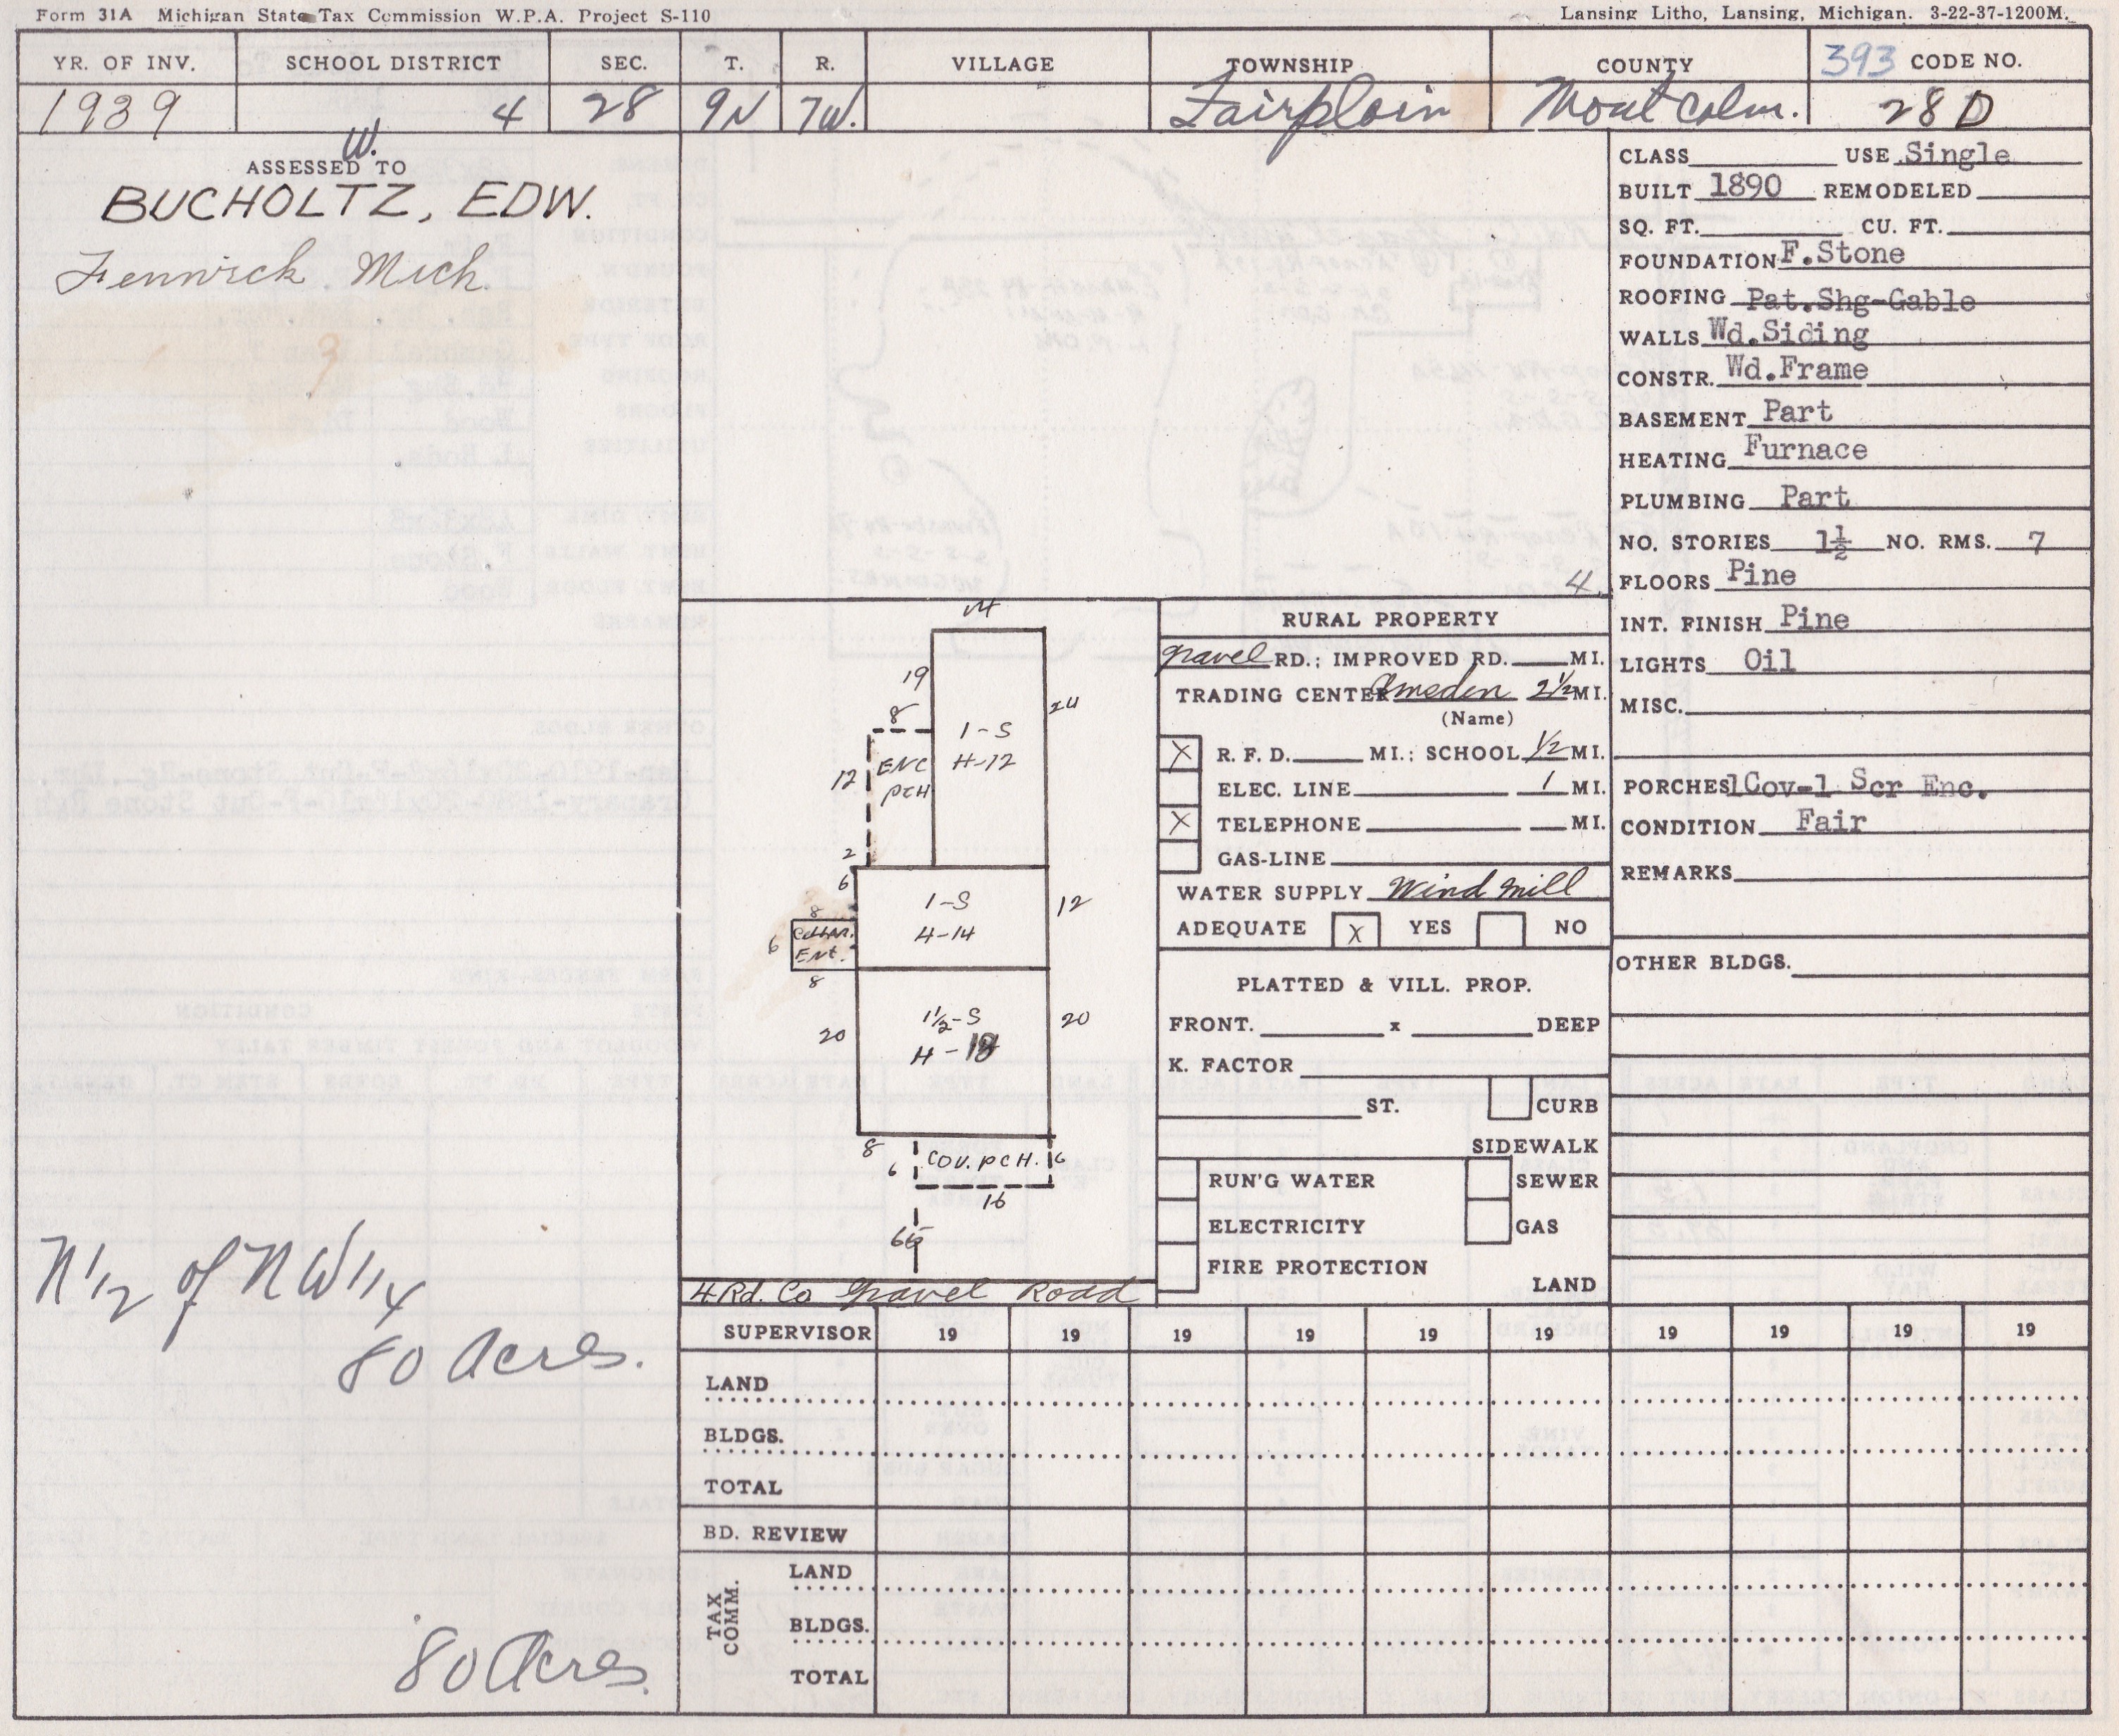 Form 31A Michigan State Tax Commission W.P.A. Project S-110
Lansing Litho, Lansing, Michigan. 3-22-37-1200M.
YR. OF INV. SCHOOL DISTRICT SEC. T. R. VILLAGE TOWNSHIP COUNTY 393 CODE NO.
1939 4 28 9N 7W. Fairplain Montcalm. 28 D
W.
ASSESSED TO
BUCHOLTZ, EDW.
Fenwick Mich.
N 1/2 of NW 1/4
80 Acres.
80 Acres.
CLASS USE Single
BUILT 1890 REMODELED
SQ. FT. CU. FT.
FOUNDATION F.Stone
ROOFING Pat.Shg-Gable
WALLS Wd.Siding
CONSTR. Wd.Frame
BASEMENT Part
HEATING Furnace
PLUMBING Part
NO. STORIES 1½ NO. RMS. 7
4. FLOORS Pine
INT. FINISH Pine
LIGHTS Oil
MISC.
PORCHES 1Cov-1 Scr Enc.
CONDITION Fair
REMARKS
OTHER BLDGS.
14
19
8
24
1-S
H-12
12
ENC
PCH
2
6
1-S
4-14
12
8
6
Cellar.
Ent.
8
20
1½-S
H-18
20
8
6
COV. PCH.
6
16
66
4 Rd. Co Gravel Road
RURAL PROPERTY
gravel RD.; IMPROVED RD. MI.
TRADING CENTER Amsden 2½ MI.
(Name)
X R. F. D. MI.; SCHOOL ½ MI.
ELEC. LINE 1 MI.
X TELEPHONE MI.
GAS-LINE
WATER SUPPLY Wind mill
ADEQUATE X YES NO
PLATTED & VILL. PROP.
FRONT. x DEEP
K. FACTOR
ST. CURB
SIDEWALK
RUN'G WATER SEWER
ELECTRICITY GAS
FIRE PROTECTION
LAND
SUPERVISOR 19 19 19 19 19 19 19 19 19 19
LAND
BLDGS.
TOTAL
BD. REVIEW
TAX COMM.
LAND
BLDGS.
TOTAL